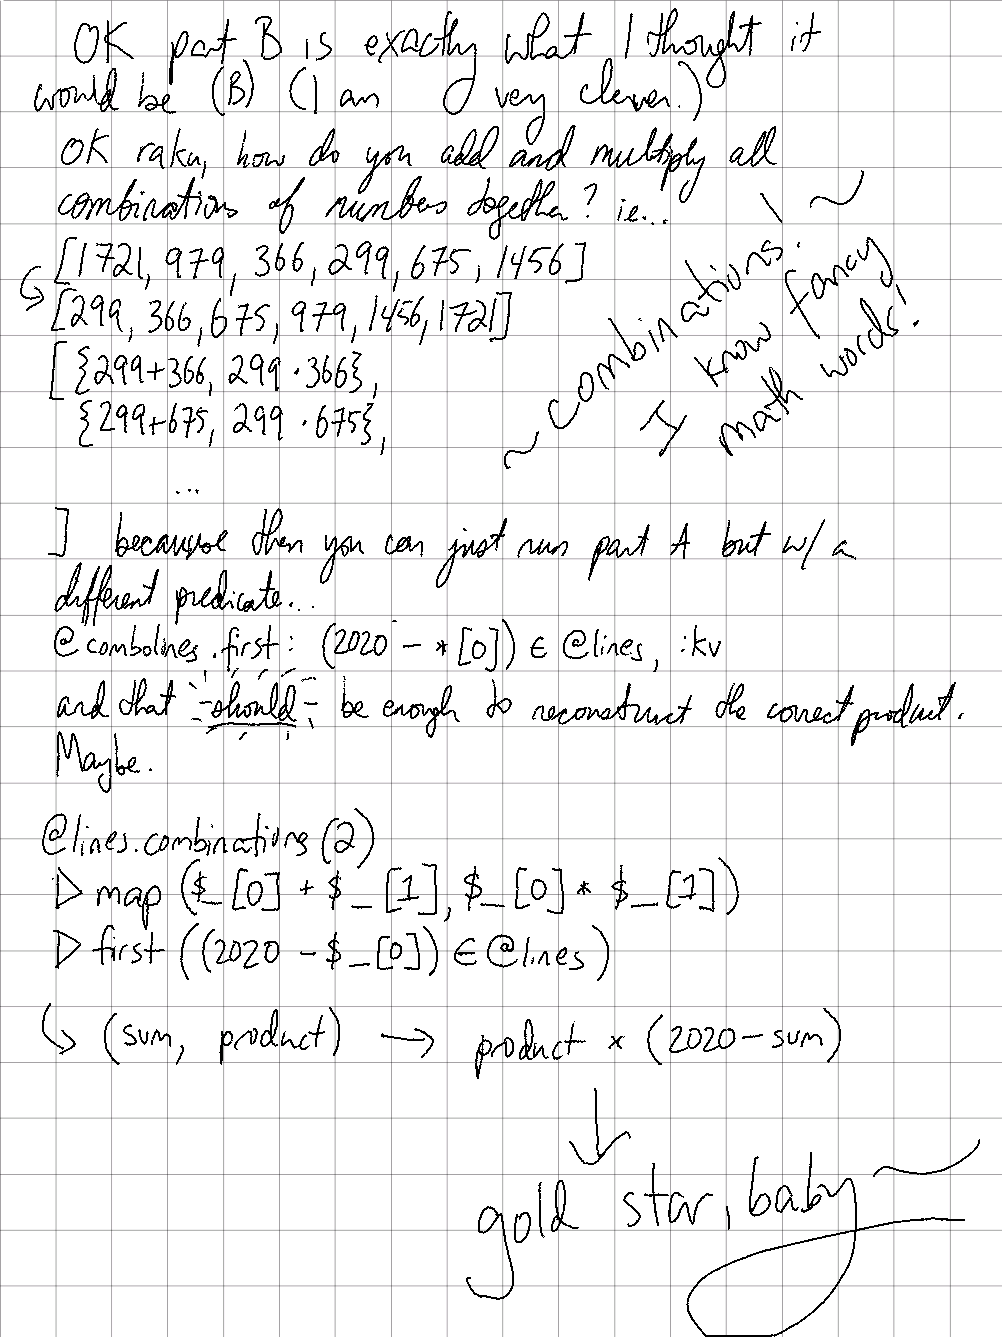 OK part B is exactly what I thought it
would be (B) (I am very clever.)
OK raku, how do you add and multiply all
combinations of numbers together? ie...
[1721, 979, 366, 299, 675, 1456]
↳ [299, 366, 675, 979, 1456, 1721]
[ {299+366, 299 · 366},
{299+675, 299 · 675},
...
~ combinations! ~
I know fancy
math words!
] because then you can just run part A but w/ a
different predicate...
@combolines.first: (2020 - *[0]) ∈ @lines, :kv
and that should be enough to reconstruct the correct product.
Maybe.
@lines.combinations(2)
▷ map ($_[0] + $_[1], $_[0] * $_[1])
▷ first ((2020 - $_[0]) ∈ @lines)
↳ (sum, product) → product × (2020 - sum)
↓
gold star, baby ~